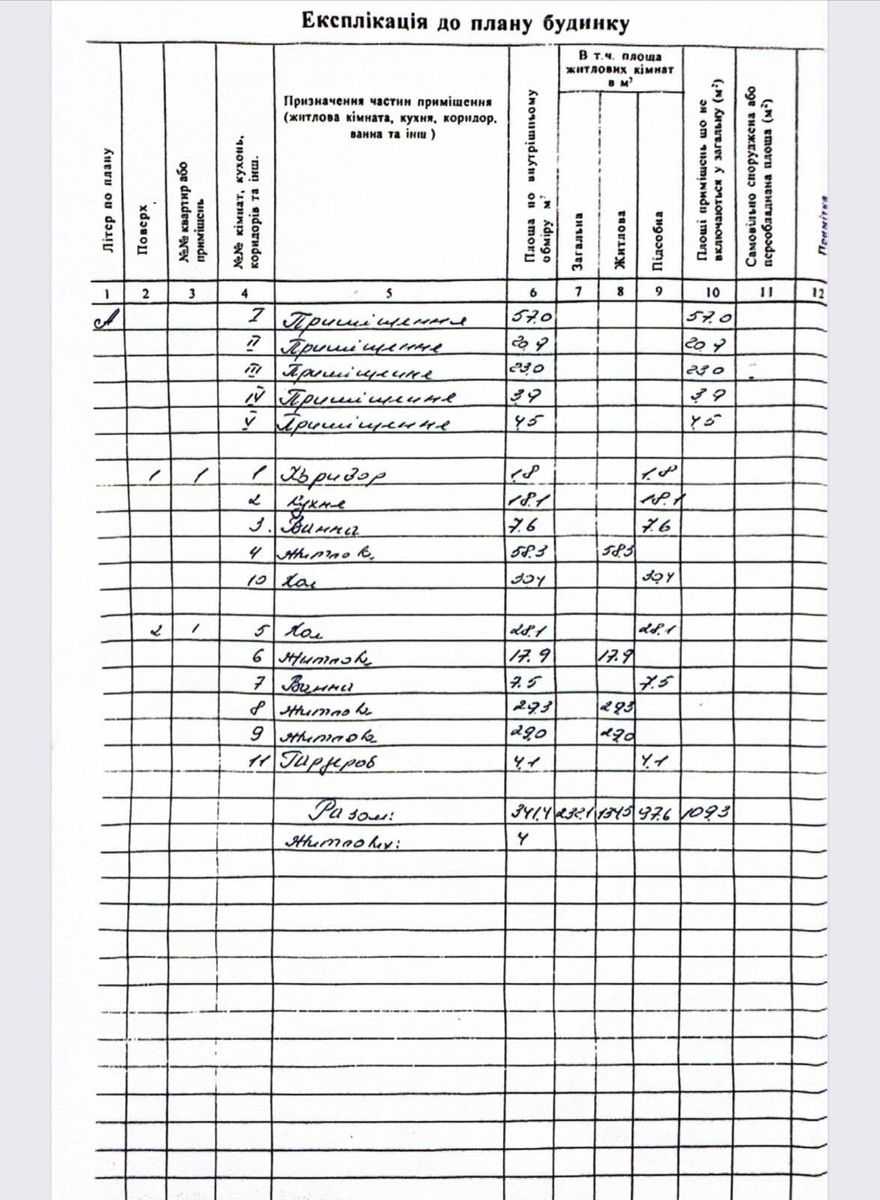 Експлікація до плану будинку
Літер по плану
Поверх
№№ квартир або приміщень
№№ кімнат, кухонь, коридорів та інш.
Призначення частин приміщення
(житлова кімната, кухня, коридор,
ванна та інш )
Площа по внутрішньому обміру м²
В т.ч. площа
житлових кімнат
в м²
Загальна
Житлова
Підсобна
Площі приміщень що не включаються у загальну (м²)
Самовільно споруджена або переобладнана площа (м²)
Примітка
1 2 3 4 5 6 7 8 9 10 11 12
А I Приміщення 57.0 57.0
II Приміщення 20.9 20.9
III Приміщення 23.0 23.0
IV Приміщення 3.9 3.9
V Приміщення 4.5 4.5
1 1 1 Коридор 1.8 1.8
2 Кухня 18.1 18.1
3. Ванна 7.6 7.6
4 Житлова 58.3 58.3
10 Хол 30.4 30.4
2 1 5 Хол 28.1 28.1
6 Житлова 17.9 17.9
7 Ванна 7.5 7.5
8 Житлова 29.3 29.3
9 Житлова 29.0 29.0
11 Гардероб 4.1 4.1
Разом: 341.4 232.1 134.5 97.6 109.3
Житлових: 4